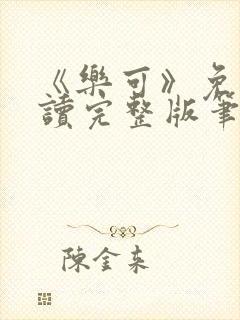 《樂可》免
讀完整版筆
陳金来